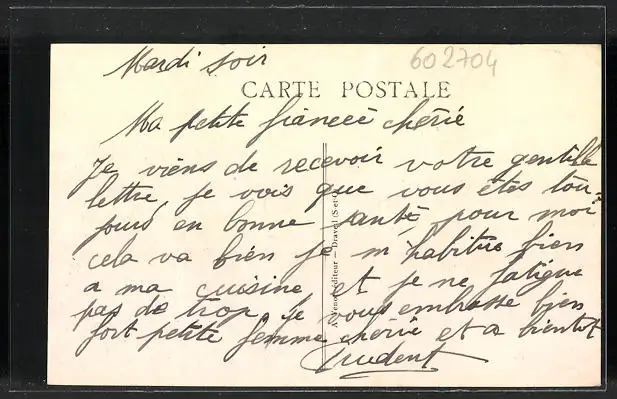 Mardi soir
602704
CARTE POSTALE
Ma petite fianceé chérie
Je viens de recevoir votre gentille
lettre, je vois que vous êtes tou-
jours en bonne santé, pour moi
cela va bien je m'habitue bien
a ma cuisine et je ne fatigue
pas de trop. Je vous embrasse bien
fort petite femme chérie et a bientot
Prudent